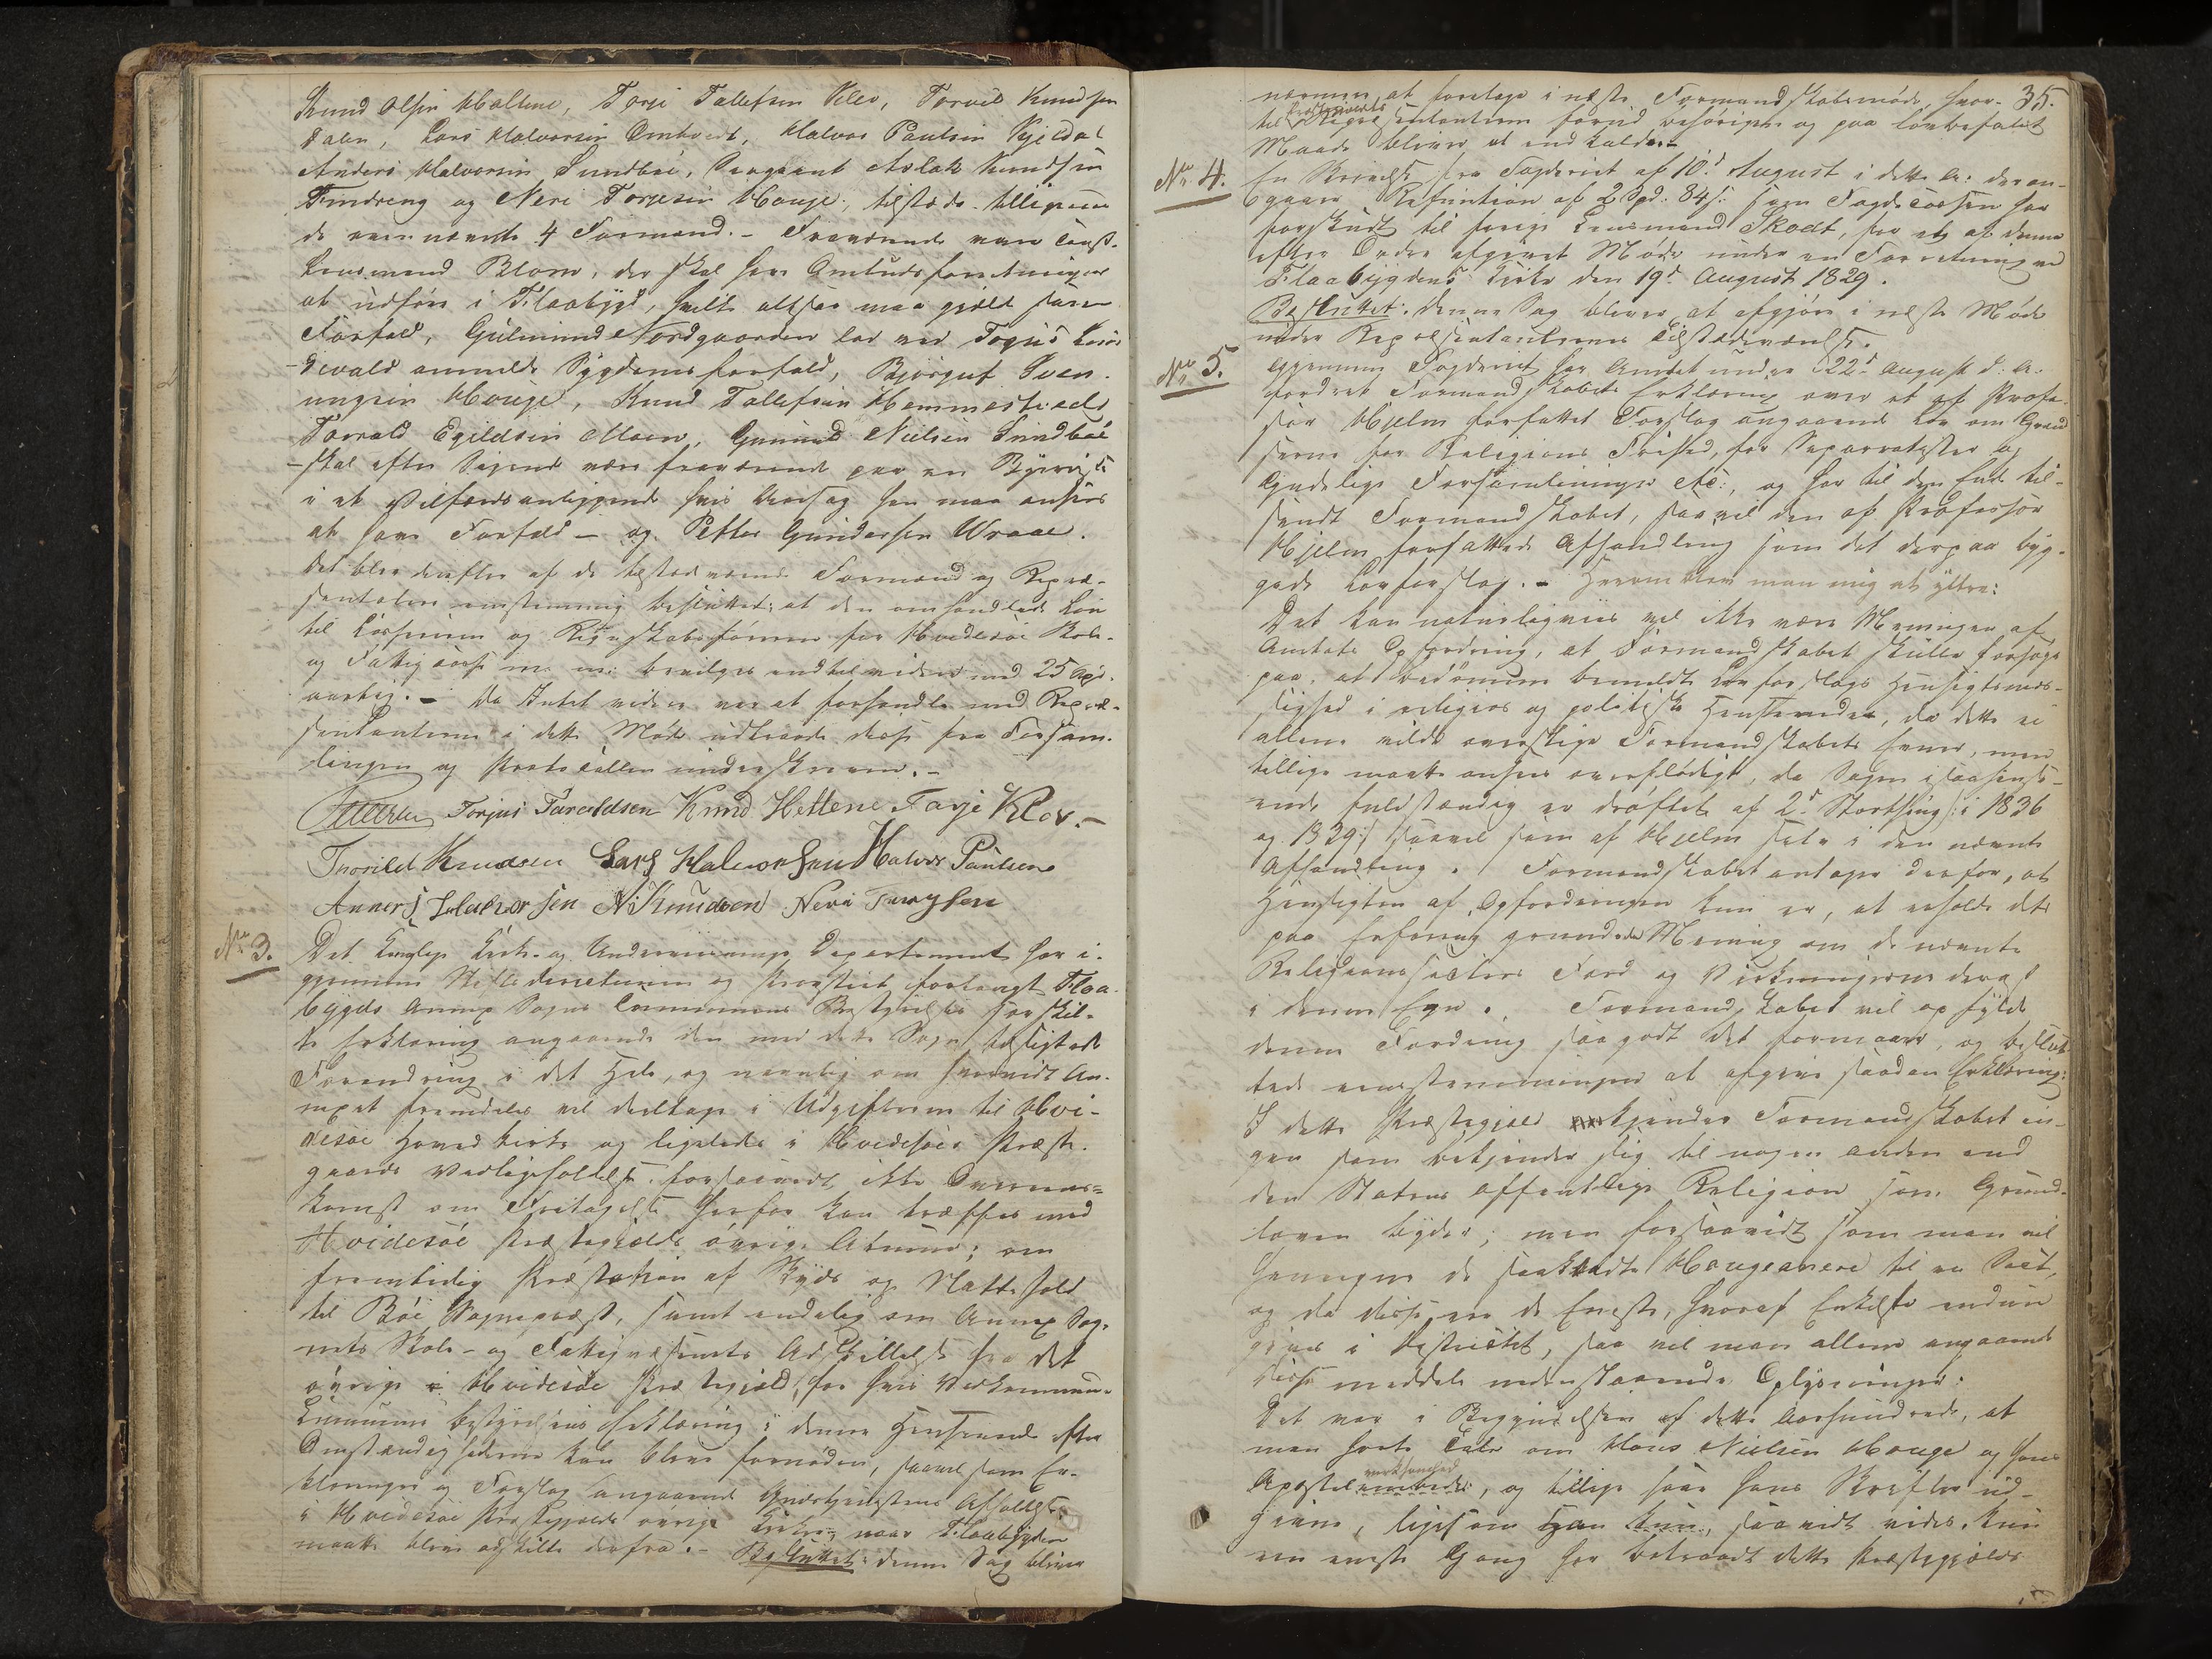 Knud Olsen Hallene, Torje Tallefsen Klev, Torvild Knudsen
Dalen, Lars Halvorsen Omtvedt, Halvor Paulsen Kjeldal
Anders Halvorsen Sundböe, Sergeant Aslak Knudsen
Tindreng og Neri Torjesen Houge, tilstæde tilligemed
de ovennævnte 4 Formænd. – Fraværende vare Const.
Lensmand Blom, der skal have Amtuds forretninger
at udføre i Flaabygd, hvilket altsaa maa gjelde som
Forfald, Gulmund Nordgaarden lod ved Torjus
anmelde Sygdoms forfald, Bjørguf Sven-
ungsen Houge, Knud Tallefsen Hemmestvedt
Torvald Egildsen Moen, Gunuld Nielsen Sundböe
– skal efter Sigende være fraværende paa en Byereise
i et Velfærdsanliggende hvis Aarsag han maa ansees
at have Forfald – og Petter Gundersen Wraae.
Det blev derefter af de tilstedeværende Formænd og Repræ-
sentantere eenstemmig besluttet: at den omhandlede Løn
til Casserer og Regnskabsfører for Hvidesöe Skole-
og Fattigcasse m. m. bevilges indtil videre med 25 Spd.
aarlig. – Da Intet videre var at forhandle med Repræ-
sentanterne i dette Møde udtraadte disse fra Forsam-
lingen og Protocollen underskreven. –
Torjus Taraldsen Knud Hellene Tarje Klev. –
Thorild Knudsen Lars Halvorsen Halvor Paulsen
Anners Halvorsen A. Knudsen Neri Torgsen
No 3. Det Kongelige Kirke- og Underviisnings Departement har i-
gjennem Stiftsdirectionen og Provstiet forlangt Flaa-
bygds Annex Sogns Communes Bestyrelses særskil-
te Erklæring angaaende den med dette Sogn tilsigtede
Forandring i det Hele, og navnlig om hvorvidt An-
nexet fremdeles vil deeltage i Udgifterne til Hvi-
desöe Hovedkirke og ligeledes i Hvidesöes Præste-
gaards Vedligeholdelse forsaavidt ikke Overeens=
komst om Fritagelse herfor kan træffes med
Hvidesöe Præstegjelds øvrige Almue; om
fremtidig Præstation af Skyds og Nattehold
til Böe Sognepræst, samt endelig om Annex Sog-
nets Skole- og Fattigvæsenets Adskillelse fra det
øvrige i Hvidesöe Præstegjeld, for hvis Vedkommende
Commune bestyrelsens Erklæring i denne Henseende efter
Omstændighederne kan blive fornøden, saavelsom Er-
klæringer og Forslag angaaende Gudstjenestens Afholdelse
i Hvidesöe Præstegjelds øvrige Kirker, naar Flaabygden
maatte blive adskilte derfra. – Besluttet: denne Sag bliver
35.
nærmere at foretage i næste Formandskabsmøde, hvor-
til Repræsentanterne forud besørges og paa lovbefalet
Maade bliver at indkalde. –
No 4. En Skrivelse fra Fogderiet af 10d August i dette A: deran-
gaaende Refusion af 2 Spd. 84 s. som Fogdecassen har
forskudt til forrige Lensmand Skodt, for et af denne
efter Ordre afgivet Møde under en Forretning ved
Flaabygdens Kirke den 19d August 1829.
Besluttet: denne Sag bliver at afgjøre i næste Møde
under Repræsentanternes Tilstedeværelse.
No 5. Gjennem Fogderiet har Amtet under 22d August d. A.
fordret Formandskabets Erklæring over et af Profe-
sor Hjelm forfattet Forslag angaaende Lov om Grænd-
serne for Religions Frihed, for Separatister og
Gudelige Forsamlinger etc:, og har til den Ende til-
sendt Formandskabet, saavel den af Professor
Hjelm forfattede Afhandling som det derpaa byg-
gede Lovforslag. – Herom blev man enig at yttre:
Det kan naturligviis vel ikke være Meningen af
Amtets Opfordring, at Formandskabet skulle forsøge
paa, at bedømme bemeldte Lovforslags Hensigtsmæs-
sighed i religiøs og politiske Henseender, da dette ei
allene vilde overstige Formandskabets Evner, men
tillige maatte ansees overflødigt, da Sagen i saa Hense-
ende fuldstændig er drøftet af 2de Storthing /: i 1836
og 1839 :/ saavel som af Hjelm selv i den nævnte
Afhandling. Formandskabet antager derfor, at
Hensigten af Opfordringen kun er, at erholde dets
paa Erfaring grundede Mening om de nævnte
Religionssecters Færd og Virkningerne deraf
i denne Egn. Formandskabet vil opfylde
denne Fordring saa godt det formaaer, og beslut-
tede eenstemmingen at afgive saadan Erklæring:
I dette Præstegjeld kjender Formandskabet in-
gen som bekjender sig til nogen anden end
den Statens offentlige Religion som Grund-
loven byder; men forsaavidt som man vil
henregne de saakaldte Haugeanere til en Sect,
og da disse ere de Eneste, hvoraf Enkelte endnu
gives i Distriktet, saa vil man allene angaaende
disse meddele nedenstaaende Oplysninger:
Det var i Begyndelsen af dette Aarhundrede, at
man hørte Tale om Hans Nielsen Houge og hans
Apostel virksomhed, og tillige saae hans Skrifter ud-
givne, ligesom han kun, saavidt vides, kun
een eneste Gang har betraadt dette Præstegjelds